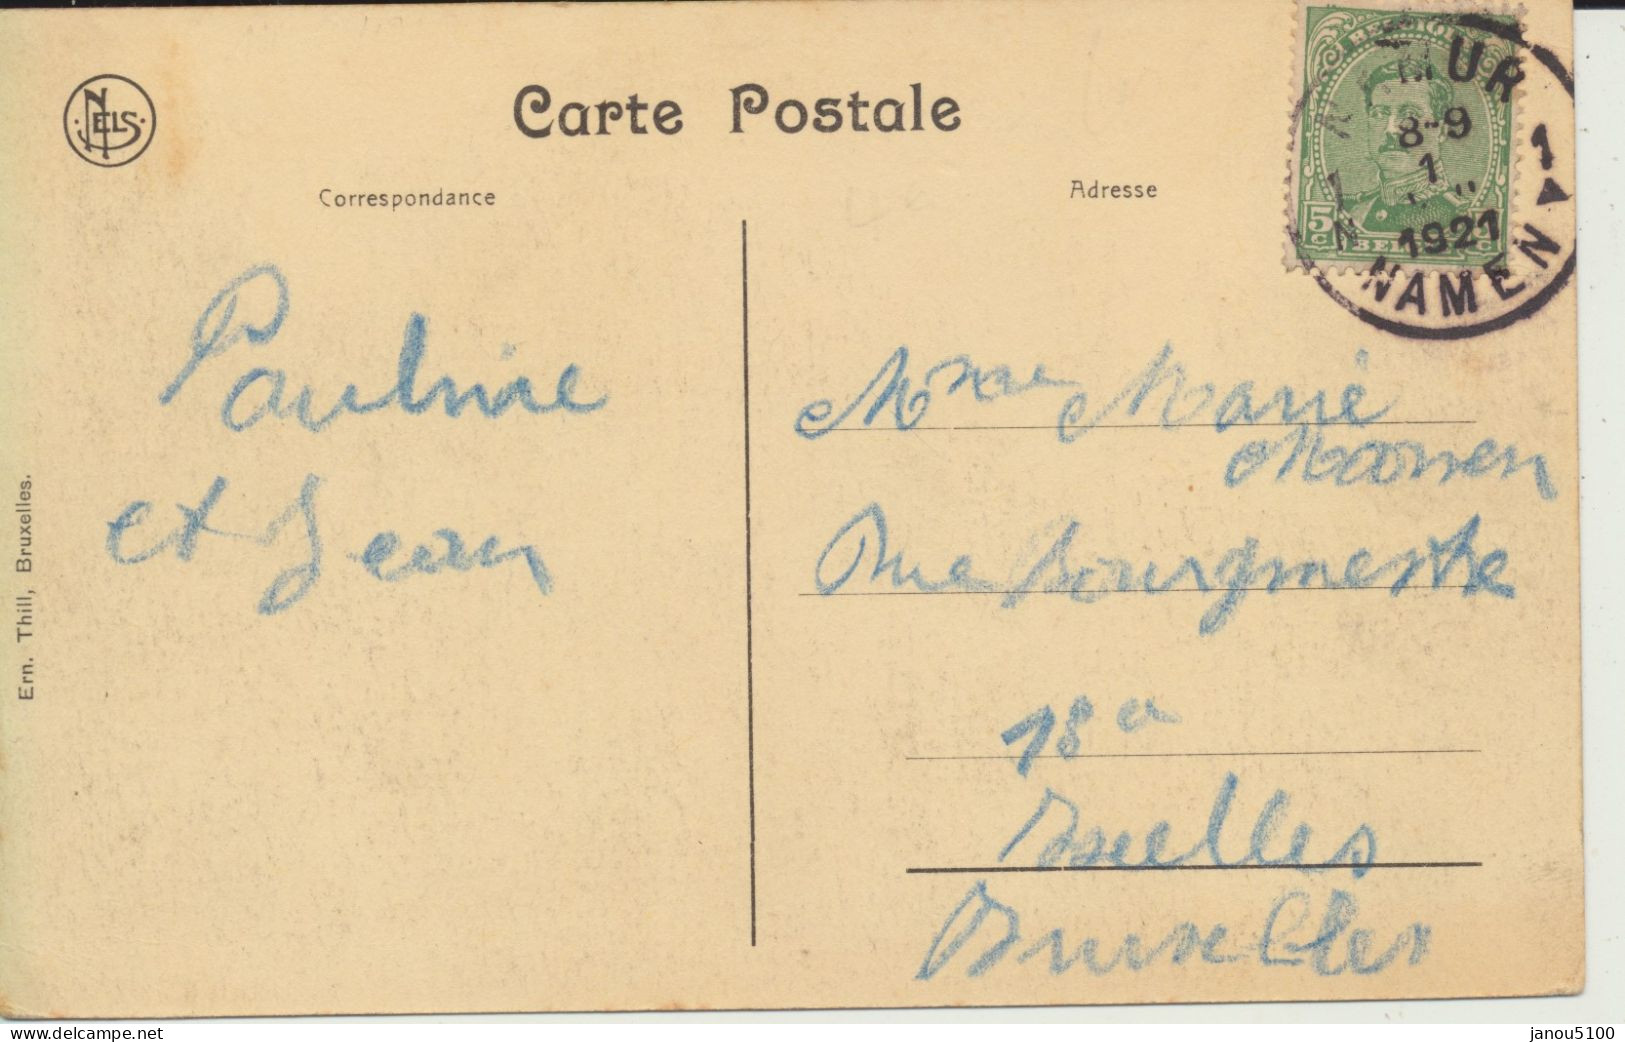 NELS
Carte Postale
Correspondance
Adresse
BELGIQUE
5c
NAMUR 1
8-9
1
1921
NAMEN
Pauline
et Jean
Mme Marie
Rue Bourgmestre
18a
Ixelles
Bruxelles
Ern. Thill, Bruxelles.
www.delcampe.net
janou5100